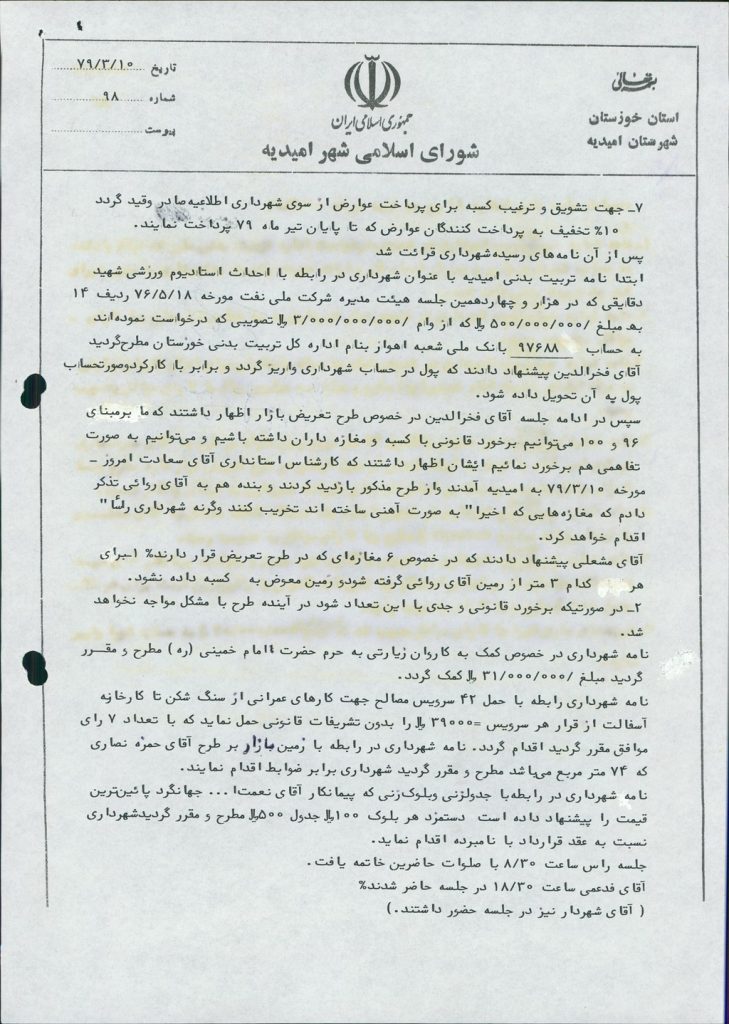 بسمه تعالی
استان خوزستان
شهرستان امیدیه
جمهوری اسلامی ایران
شورای اسلامی شهر امیدیه
تاریخ ۷۹/۳/۱۰
شماره ۹۸
پیوست
۷ـ جهت تشویق و ترغیب کسبه برای پرداخت عوارض از سوی شهرداری اطلاعیه صادر وقید گردد
۱۰% تخفیف به پرداخت کنندگان عوارض که تا پایان تیر ماه ۷۹ پرداخت نمایند.
پس از آن نامه‌های رسیده شهرداری قرائت شد
ابتدا نامه تربیت بدنی امیدیه با عنوان شهرداری در رابطه با احداث استادیوم ورزشی شهید
دقایقی که در هزار و چهاردهمین جلسه هیئت مدیره شرکت ملی نفت مورخه ۷۶/۵/۱۸ ردیف ۱۴
به مبلغ /۵۰۰/۰۰۰/۰۰۰ ریال که از وام /۳/۰۰۰/۰۰۰/۰۰۰ ریال تصویبی که درخواست نموده‌اند
به حساب ۹۷۶۸۸ بانک ملی شعبه اهواز بنام اداره کل تربیت بدنی خوزستان مطرح گردید
آقای فخرالدین پیشنهاد دادند که پول در حساب شهرداری واریز گردد و برابر با کارکردوصورتحساب
پول به آن تحویل داده شود.
سپس در ادامه جلسه آقای فخرالدین در خصوص طرح تعریض بازار اظهار داشتند که ما برمبنای
۹۶ و ۱۰۰ می‌توانیم برخورد قانونی با کسبه و مغازه داران داشته باشیم و می‌توانیم به صورت
تفاهمی هم برخورد نمائیم ایشان اظهار داشتند که کارشناس استانداری آقای سعادت امروز ـ
مورخه ۷۹/۳/۱۰ به امیدیه آمدند واز طرح مذکور بازدید کردند و بنده هم به آقای روائی تذکر
دادم که مغازه‌هایی که اخیرا" به صورت آهنی ساخته اند تخریب کنند وگرنه شهرداری رأساً"
اقدام خواهد کرد.
آقای مشعلی پیشنهاد دادند که در خصوص ۶ مغازه‌ای که در طرح تعریض قرار دارند% ۱ـ برای
هر کدام ۳ متر از زمین آقای روائی گرفته شودو زمین معوض به کسبه داده نشود.
۲ـ در صورتیکه برخورد قانونی و جدی با این تعداد شود در آینده طرح با مشکل مواجه نخواهد
شد.
نامه شهرداری در خصوص کمک به کاروان زیارتی به حرم حضرت امام خمینی (ره) مطرح و مقرر
گردید مبلغ /۳۱/۰۰۰/۰۰۰ ریال کمک گردد.
نامه شهرداری رابطه با حمل ۴۲ سرویس مصالح جهت کارهای عمرانی از سنگ شکن تا کارخانه
آسفالت از قرار هر سرویس =۳۹۰۰۰ ریال را بدون تشریفات قانونی حمل نماید که با تعداد ۷ رای
موافق مقرر گردید اقدام گردد. نامه شهرداری در رابطه با زمین بازار بر طرح آقای حمزه نصاری
که ۷۴ متر مربع می‌باشد مطرح و مقرر گردید شهرداری برابر ضوابط اقدام نمایند.
نامه شهرداری در رابطه‌با جدولزنی وبلوک‌زنی که پیمانکار آقای نعمت‌ا... جهانگرد پائین‌ترین
قیمت را پیشنهاد داده است دستمزد هر بلوک ۱۰۰ ریال جدول ۵۰۰ ریال مطرح و مقرر گردیدشهرداری
نسبت به عقد قرارداد با نامبرده اقدام نماید.
جلسه راس ساعت ۸/۳۰ با صلوات حاضرین خاتمه یافت.
آقای فدعمی ساعت ۱۸/۳۰ در جلسه حاضر شدند%
( آقای شهردار نیز در جلسه حضور داشتند.)